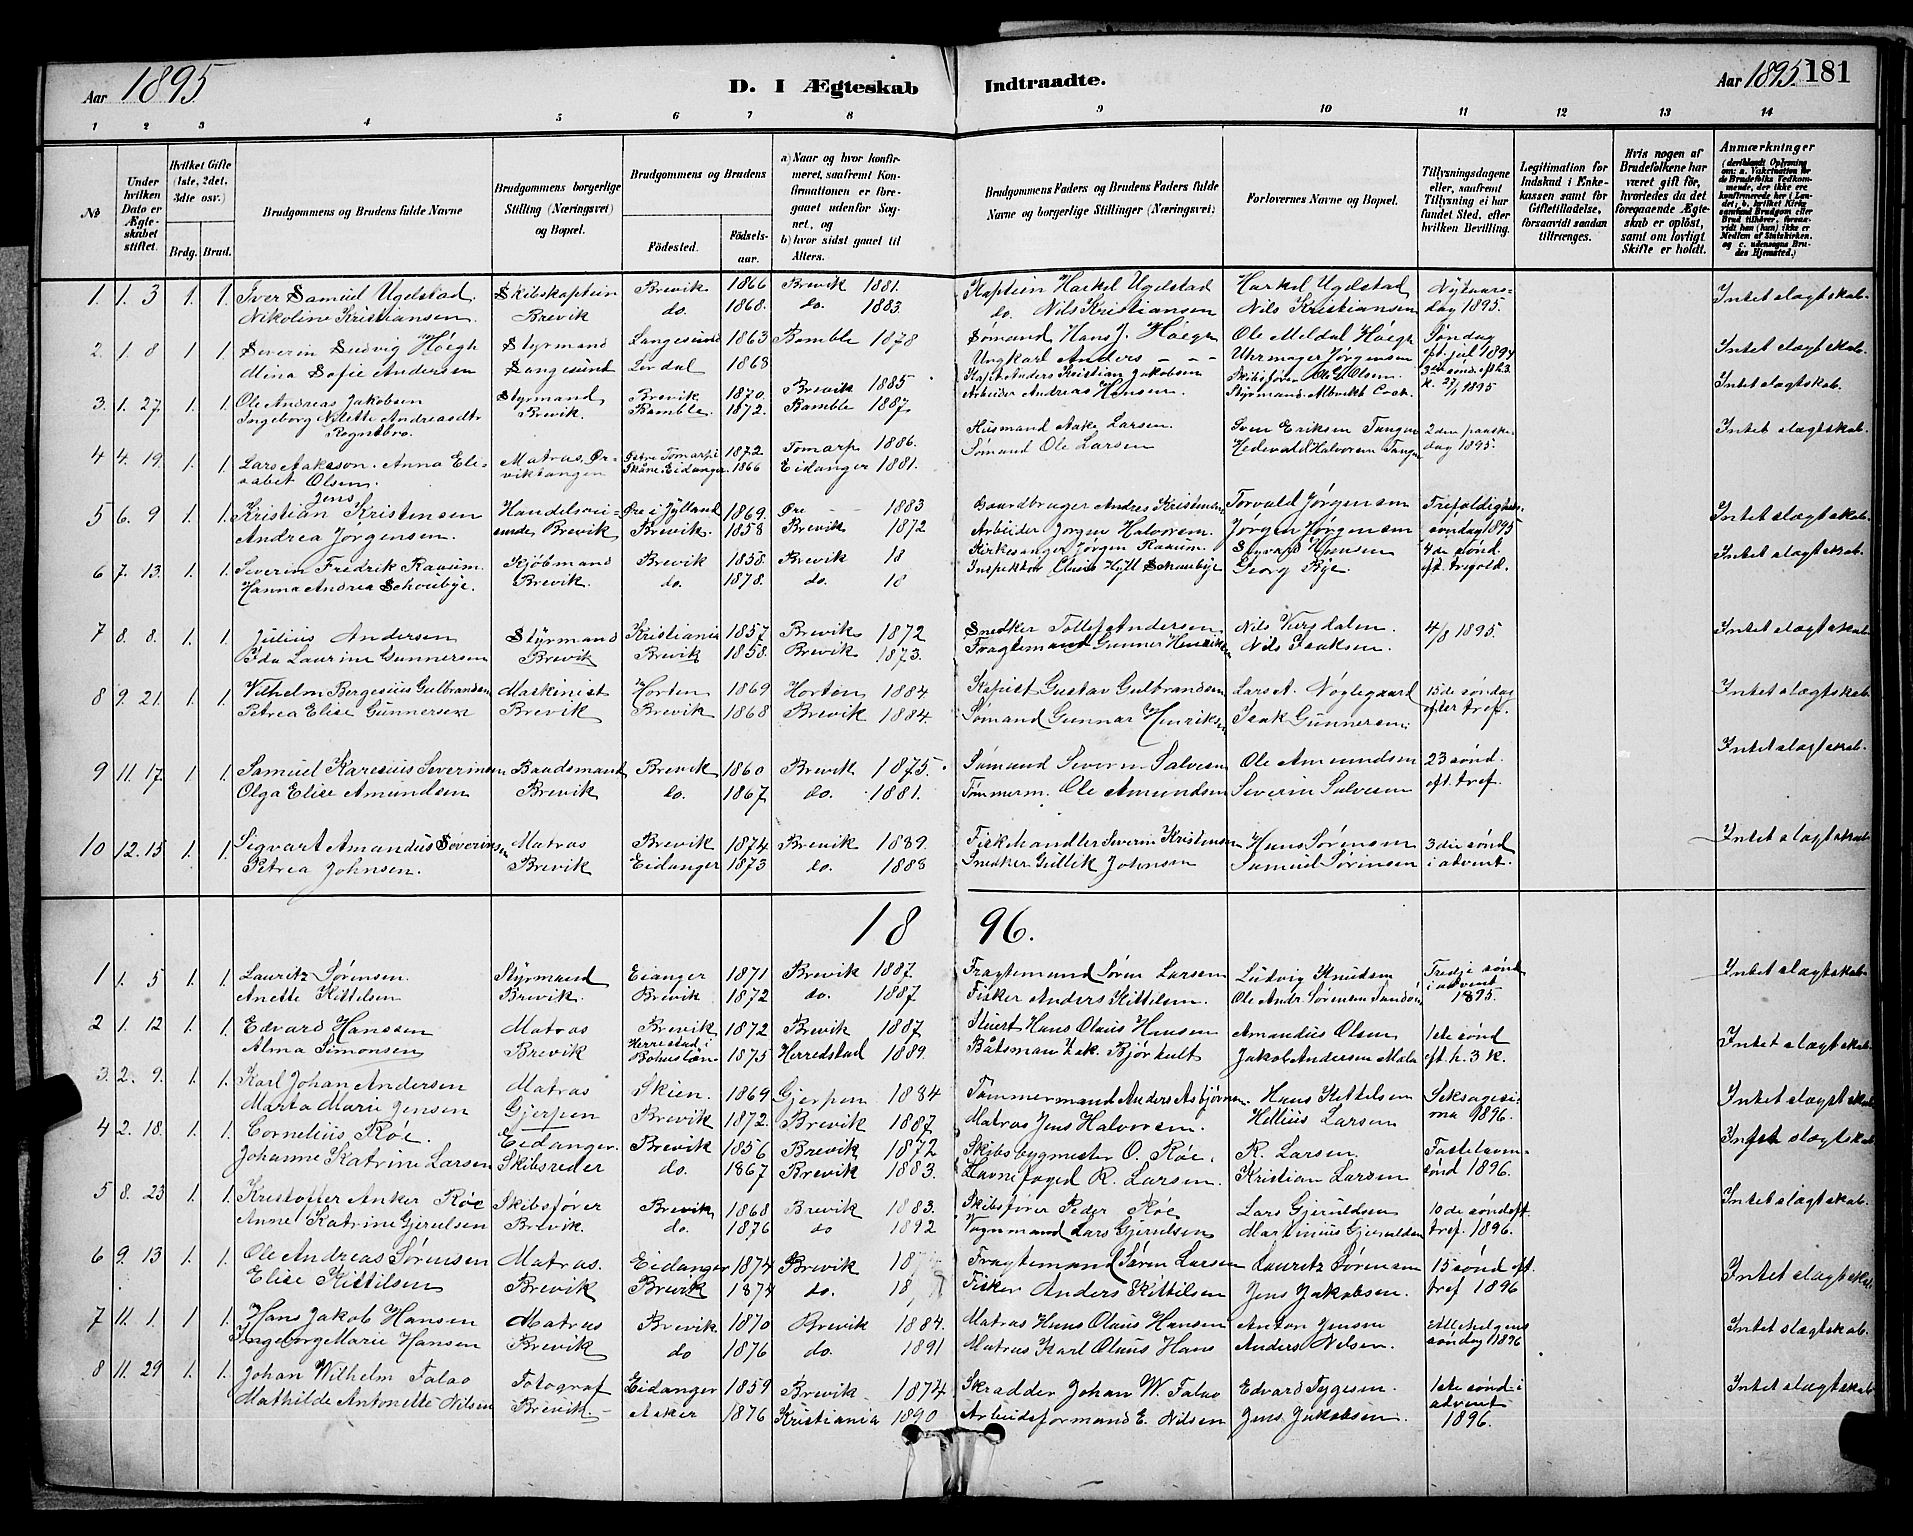 Aar 1895 D. I Ægteskab Indtraadte. Aar 1895. 181
1 2 3 4 5 6 7 8 9 10 11 12 13 14
No
Under hvilken Dato er Ægteskabet stiftet.
Hvilket Gifte (1ste, 2det, 3die osv.)
Brdg. Brud.
Brudgommens og Brudens fulde Navne
Brudgommens borgerlige Stilling (Næringsvei) og Bopæl.
Brudgommens og Brudens
Födested. Födsels-aar.
a) Naar og hvor konfirmeret, saafremt Konfirmationen er foregaaet udenfor Sognet, og
b) hvor sidst gaaet til Alters.
Brudgommens Faders og Brudens Faders fulde Navne og borgerlige Stillinger (Næringsvei)
Forlovernes Navne og Bopæl.
Tillysningsdagene eller, saafremt Tillysning ei har fundet Sted, efter hvilken Bevilling.
Legitimation for Indskud i Enkekassen samt for Giftetilladelse, forsaavidt saadan tiltrænges.
Hvis nogen af Brudefolkene har været gift för, hvorledes da det foregaaende Ægteskab er oplöst, samt om lovligt Skifte er holdt.
Anmærkninger
(deriblandt Oplysning om: a. Vakcination for de Brudefolks Vedkommende, der ikke ere konfirmerede her i Landet; b. hvilket Kirkesamfund Brudgom eller Brud tilhörer, forsaavidt han (hun) ikke er Medlem af Statskirken, og c. udensogns Brudes Hjemsted.)
1. 1. 3 1. 1. Iver Samuel Ugelstad. Skibskaptein Brevik 1866 Brevik 1881. Kaptein Harkel Ugelstad Harkel Ugelstad Nytaars- Intet slægtskab.
Nikoline Kristiansen. Brevik do. 1868. do. 1883. do. Nils Kristiansen Nils Kristiansen dag 1895.
2. 1. 8 1 1. Severin Ludvig Höegh Styrmand Langesund 1863 Bamble 1878 Sømand Hans J. Höegh Ole Meldal Höegh Søndag Intet slægtskab.
Mina Sofie Andersen Langesund 1868 Ungkarl Anders - - - Uhrmager Jørgensen eft. jul 1894
3. 1. 27. 1. 1. Ole Andreas Jakobsen Styrmand Brevik 1870. Brevik 1885 Kapt. Anders Kristian Jakobsen Skibsfører Ole G. Olsen. 3die sønd. eft. h. 3 Intet slægtskab.
Ingeborg Nilette Andreasdtr Brevik. Bamble. 1872. Bamble 1887. Arbeider Andreas Hansen. Styrmand Albrekt Cook. k. 27/1 1895
Rognsbro.
4 4. 19. 1. 1. Lars Aakeson. Anna Eli- Matros. Ør- Tomarp i 1872. Tomarp 1886. Husmand Aake Larsen. Sven Eriksen Tangen 2den paaske- Intet slægtskab.
sabet Olsen. viktangen Skåne. Eidanger 1866 Eidanger 1881. Sømand Ole Larsen Hedevald Halvorsen Tangen dag 1895.
Jens
5 6. 9 1. 1. Kristian Kristensen Handelsrei- Øre i Jylland 1869. Øre - - 1883 Gaardbruger Andres Kristensen Torvald Jørgensen Trefoldigheds- Intet slægtskab.
Andrea Jørgensen. sende, Brevik Brevik. 1858 Brevik 1872 Arbeider Jørgen Halvorsen. Jørgen Jørgensen søndag 1895
6 7. 13. 1. 1. Severin Fredrik Raaum. Kjøbmand Brevik 1858. Brevik 18 Kirkesanger Jørgen Raaum. Sigvard Hansen 4de sønd. Intet slægtskab.
Hanna Andrea Schoubye. Brevik. do. 1878. do. 18 Inspektør Schoubye Georg Bye. eft. trefold.
7 8. 8. 1. 1. Julius Andersen Styrmand Kristiania 1857. Brevik 1872 Snedker Tollef Andersen Nils Versdalen. 4/8 1895. Intet slægtskab
Ida Laurine Gunnersen Brevik Brevik 1858. Brevik 1873. Fragtemand Gunner Henriksen Nils Isaksen.
8 9. 21. 1. 1. Vilhelm Bergesius Gulbrandsen Maskinist Horten 1869 Horten 1884 Gustav Gulbrandsen Lars A. Nøglegaard 15de søndag Intet slægtskab
Petrea Elise Gunnersen Brevik Brevik 1868 Brevik 1884. Sømand Gunnar Henriksen Isak Gunnersen. efter tref.
9 11. 17. 1 1. Samuel Karesius Severinsen Baadsmand Brevik 1860 Brevik 1875. Sømand Severin Salvesen Ole Amundsen 23 sønd. Intet slægtskab.
Olga Elise Amundsen Brevik do. 1867 do. 1881. Tømmerm. Ole Amundsen Severin Salvesen eft. tref.
10 12. 15. 1. 1. Sigvart Amandus Severinsen Matros Brevik 1874 Brevik 1889. Fiskehandler Severin Kristensen Hans Sørensen 3die sønd Intet slægtskab
Petrea Johnsen. Brevik Eidanger 1873 do. 1888 Snedker Gullek Johnsen Samuel Sørensen i advent.
18 96.
1 1. 5 1. 1. Lauritz Sørensen. Styrmand Eianger 1871 Brevik 1887 Fragtemand Søren Larsen Ludvig Knudsen Tredje sønd Intet slægtskab
Anette Kittilsen Brevik. Brevik 1872 do. 1887 Fisker Anders Kittilsen. Ole Andr. Sørensen i advent 1895.
2 1. 12 1. 1. Edvard Hanssen Matros Brevik 1872 Brevik 1887 Stuert Hans Olaus Hansen Amandus Olsen 1ste sønd Intet slægtskab
Alma Simonsen Brevik Herrestad i Bohuslän 1875 Herredstad 1889. Båtsman Bjørkult Jakob Andersen eft. h. 3 k.
3. 2. 9. 1. 1. Karl Johan Andersen Matros Skien. 1869 Gjerpen 1884 Tømmermand Anders Asbjørnsen. Hans Kittelsen Seksagesi- Intet slægtskab
Marta Marie Jensen Gjerpen Brevik 1872. Brevik 1887 Matros Jens Halvorsen. Hellius Larsen ma 1896.
4 2. 18. 1. 1. Cornelius Røe. Eidanger. Brevik 1856 Brevik 1872 Skibsbygmester O. Røe. R. Larsen. Fastelavn- Intet slægtskab.
Johanne Katrine Larsen Skibsreder do. 1867 Brevik 1883. Havnefoged R. Larsen. Kristian Larsen sønd 1896.
5 8. 23 1. 1. Kristoffer Anker Røe Skibsfører Brevik 1868 Brevik 1883. Skibsfører Peder Røe Lars Gjeruldsen 10de sønd eft Intet slægtskab.
Anne Katrine Gjerulsen Brevik. do. 1876 do 1892 Vognmand Lars Gjerulsen Martinius Gjeruldsen tref. 1896.
6 9. 13 1. 1. Ole Andreas Sørensen Matros. Eidanger 1874 Brevik 18 Fragtemand Søren Larsen Lauritz Sørensen 15 sønd eft Intet slægtskab
Elise Kittilsen Brevik Brevik 1874 do. 18 Fisker Anders Kittilsen Jens Jakobsen. tref 1896
7 11. 1. 1 1. Hans Jakob Hansen Matros Brevik 1870 Brevik 1884. Matros Hans Olaus Hansen Anton Jensen Allehelgens Intet slægtskab.
Ingeborg Marie Hansen Brevik do 1876 do. 1891 Matros Karl Olaus Hans Anders Nilsen. søndag 1896
8 11. 29 1. 1. Johan Wilhelm Falao Fotograf Eidanger 1859 Brevik 1874. Skradder Johan W. Falao Edvard Tygesen. 1ste sønd i Intet slægtskab
Mathilde Antonette Nilsen Brevik Asker 1876 Kristiania 1890 Arbeidsformand E. Nilsen Jens Jakobsen. advent 1896.